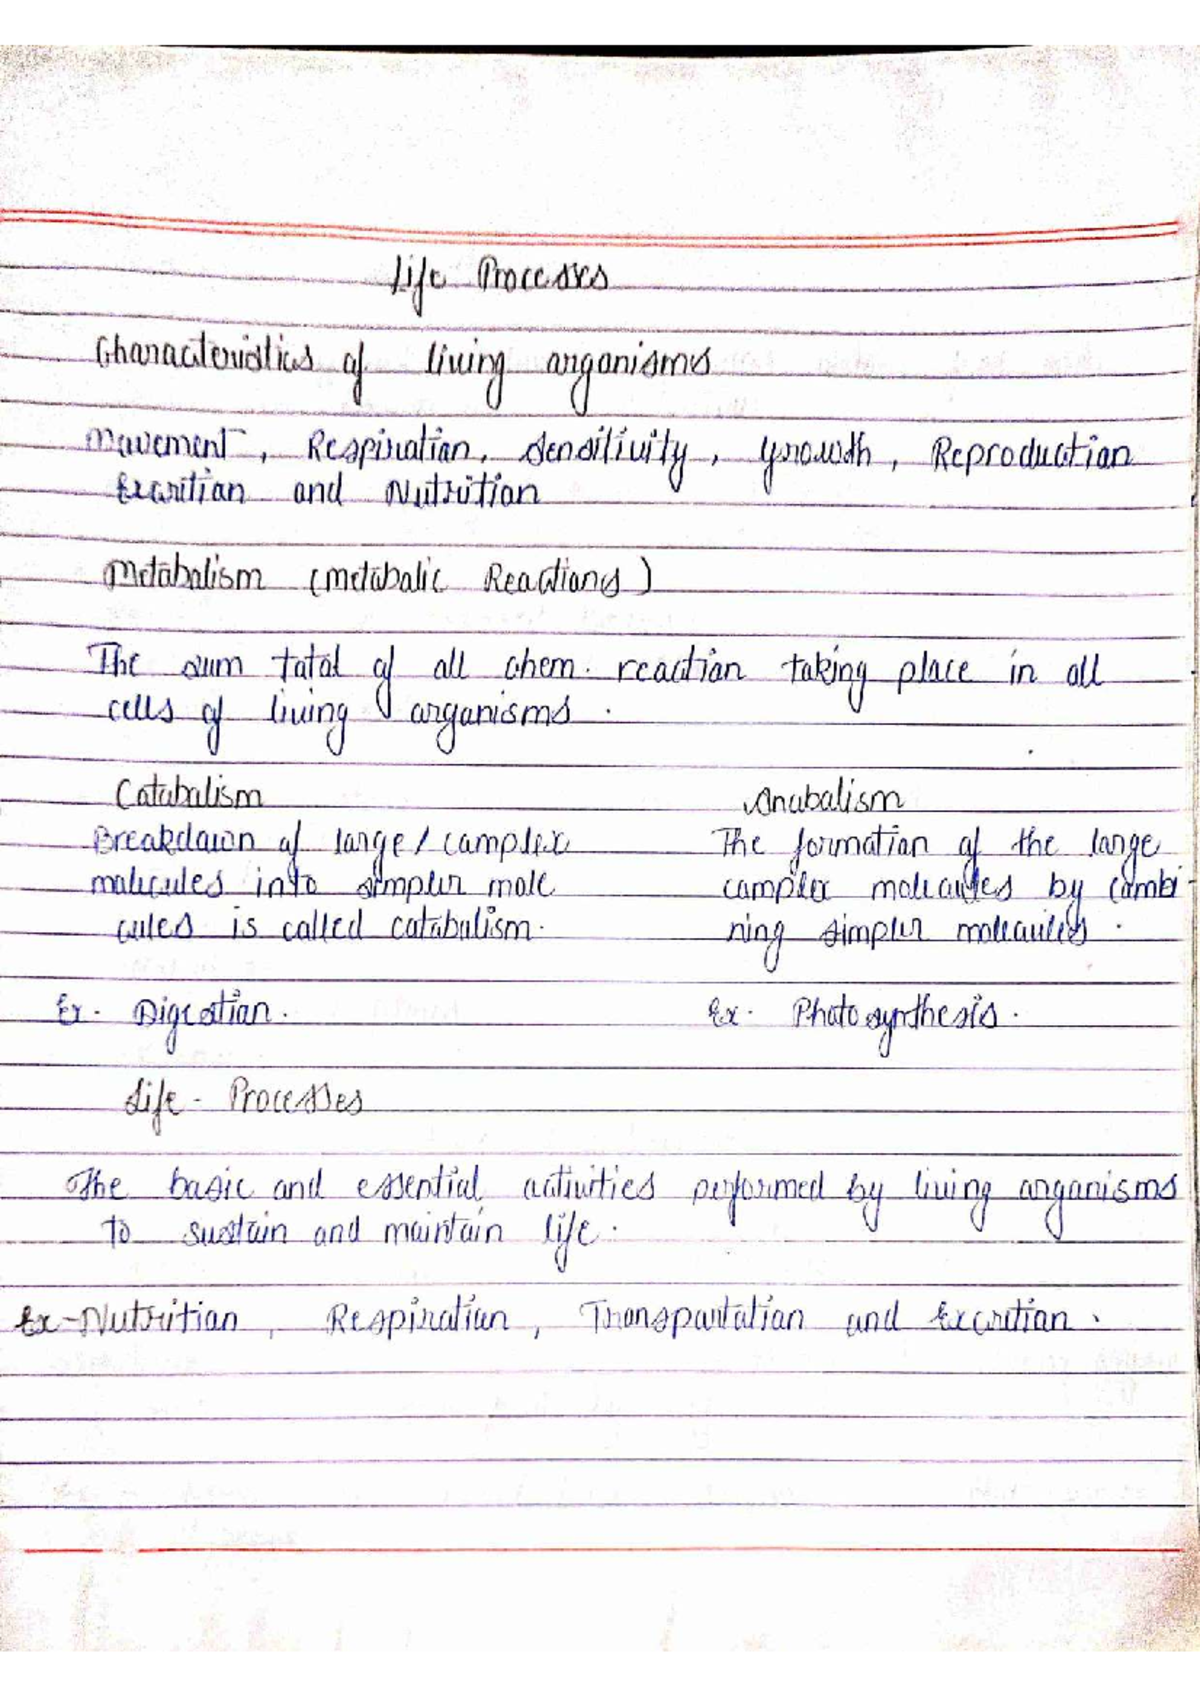 Life Processes
Characteristics of living organisms
Movement, Respiration, Sensitivity, Growth, Reproduction
Excretion and Nutrition
Metabolism (Metabolic Reactions)
The sum total of all chem. reaction taking place in all
cells of living organisms.
Catabolism
Anabolism
Breakdown of large/complex
The formation of the large
molecules into simpler mole
complex molecules by combi-
cules is called catabolism.
ning simpler molecules.
Ex. Digestion.
Ex. Photosynthesis.
Life-Processes
The basic and essential activities performed by living organisms
to sustain and maintain life.
Ex-Nutrition, Respiration, Transportation and Excretion.